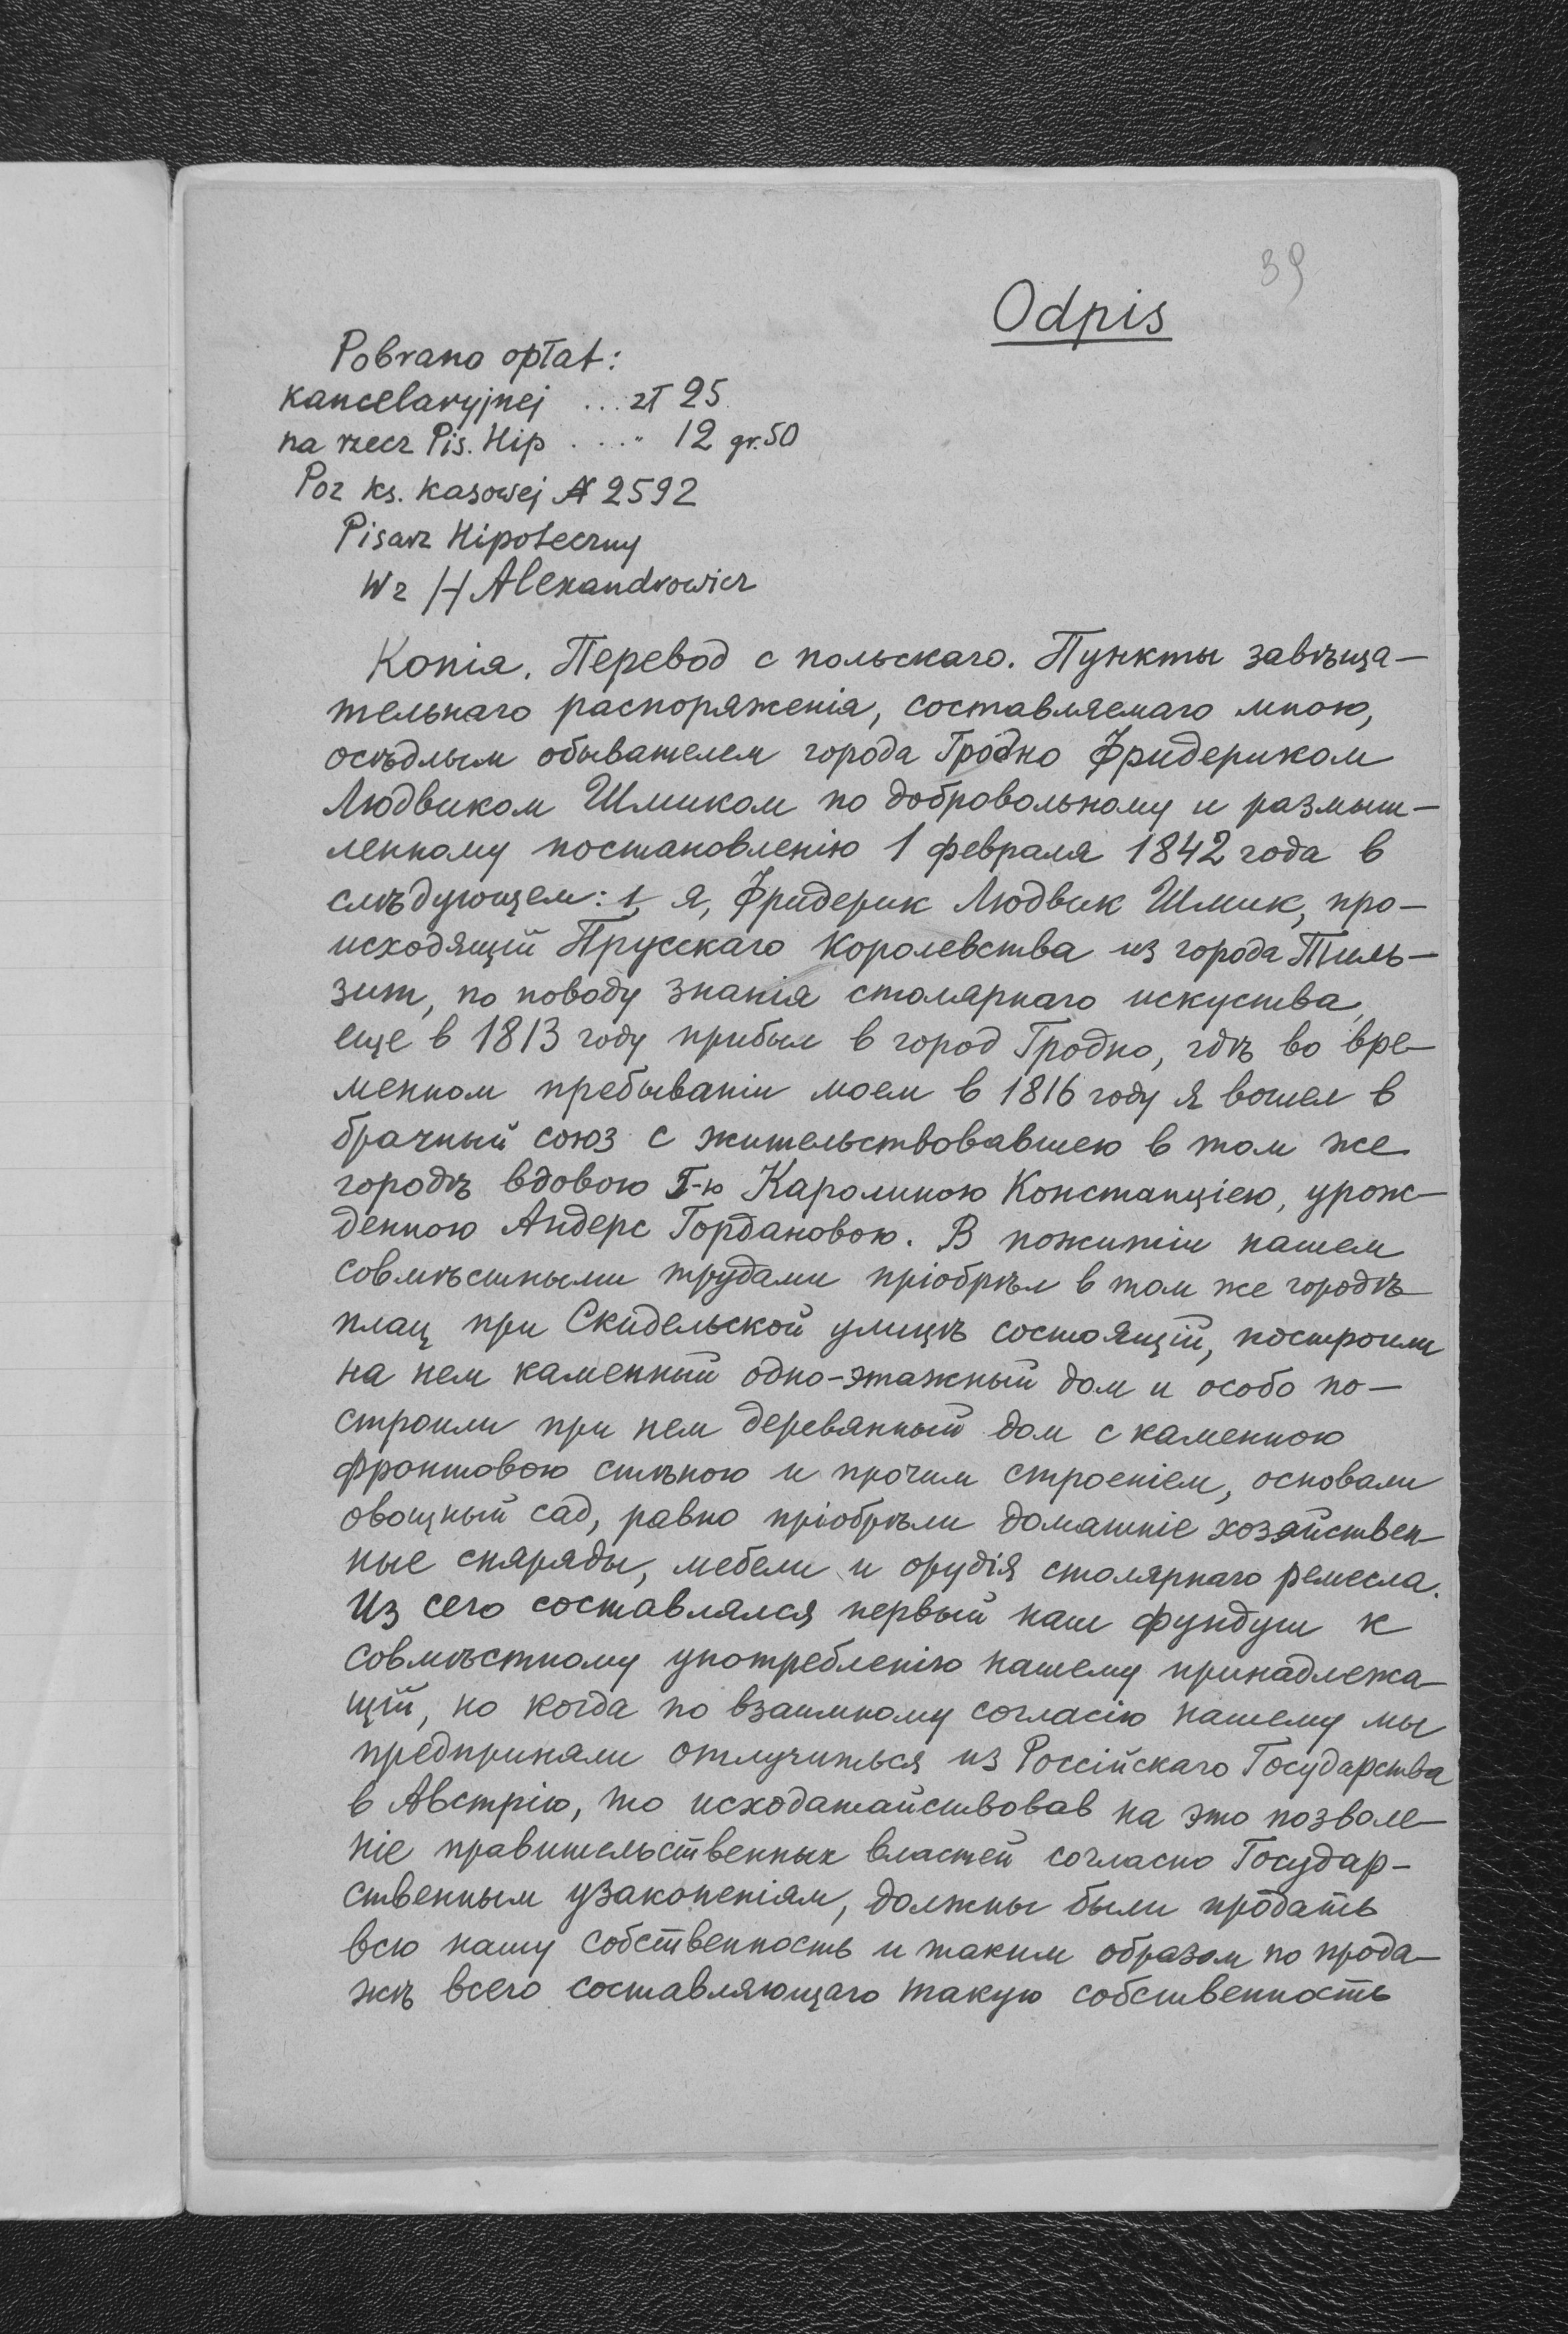 39
Odpis
Pobrano opłat:
Kancelaryjnej ... zł 25
na rzecz Pis. Hip ....„ 12 gr. 50
Poz ks. Kasowej № 2592
Pisarz Hipoteczny
Wz /-/ Alexandrowicz
Копія. Перевод с польскаго. Пункты завѣща-
тельнаго распоряженія, составляемаго мною,
осѣдлым обывателем города Гродно Фридериком
Людвиком Шмиком по добровольному и размыш-
ленному постановленію 1 февраля 1842 года в
слѣдующем: 1, я, Фридерик Людвик Шмик, про-
исходящій Прусскаго Королевства из города Тиль-
зит, по поводу знанія столярнаго искуства,
еще в 1813 году прибыл в город Гродно, гдѣ во вре-
менном пребываніи моем в 1816 году я вошел в
брачный союз с жительствовавшею в том же
городѣ вдовою I-ю Каролиною Констанціею, урож-
денною Андерс Гордановою. В пожитіи нашем
совмѣстными трудами пріобрѣл в том же городѣ
плац при Скидельской улицѣ состоящій, построили
на нем каменный одно-этажный дом и особо по-
строили при нем деревянный дом с каменною
фронтовою стѣною и прочим строеніем, основали
овощный сад, равно пріобрѣли домашніе хозяйствен-
ные снаряды, мебели и орудія столярнаго ремесла.
Из сего составлялся первый наш фундуш к
совмѣстному употребленію нашему принадлежа-
щій, но когда по взаимному согласію нашему мы
предприняли отлучиться из Россійскаго Государства
в Австрію, то исходатайствовав на это позволе-
ніе правительственных властей согласно Государ-
ственным узаконеніям, должны были продать
всю нашу собственность и таким образом по прода-
жѣ всего составляющаго такую собственность